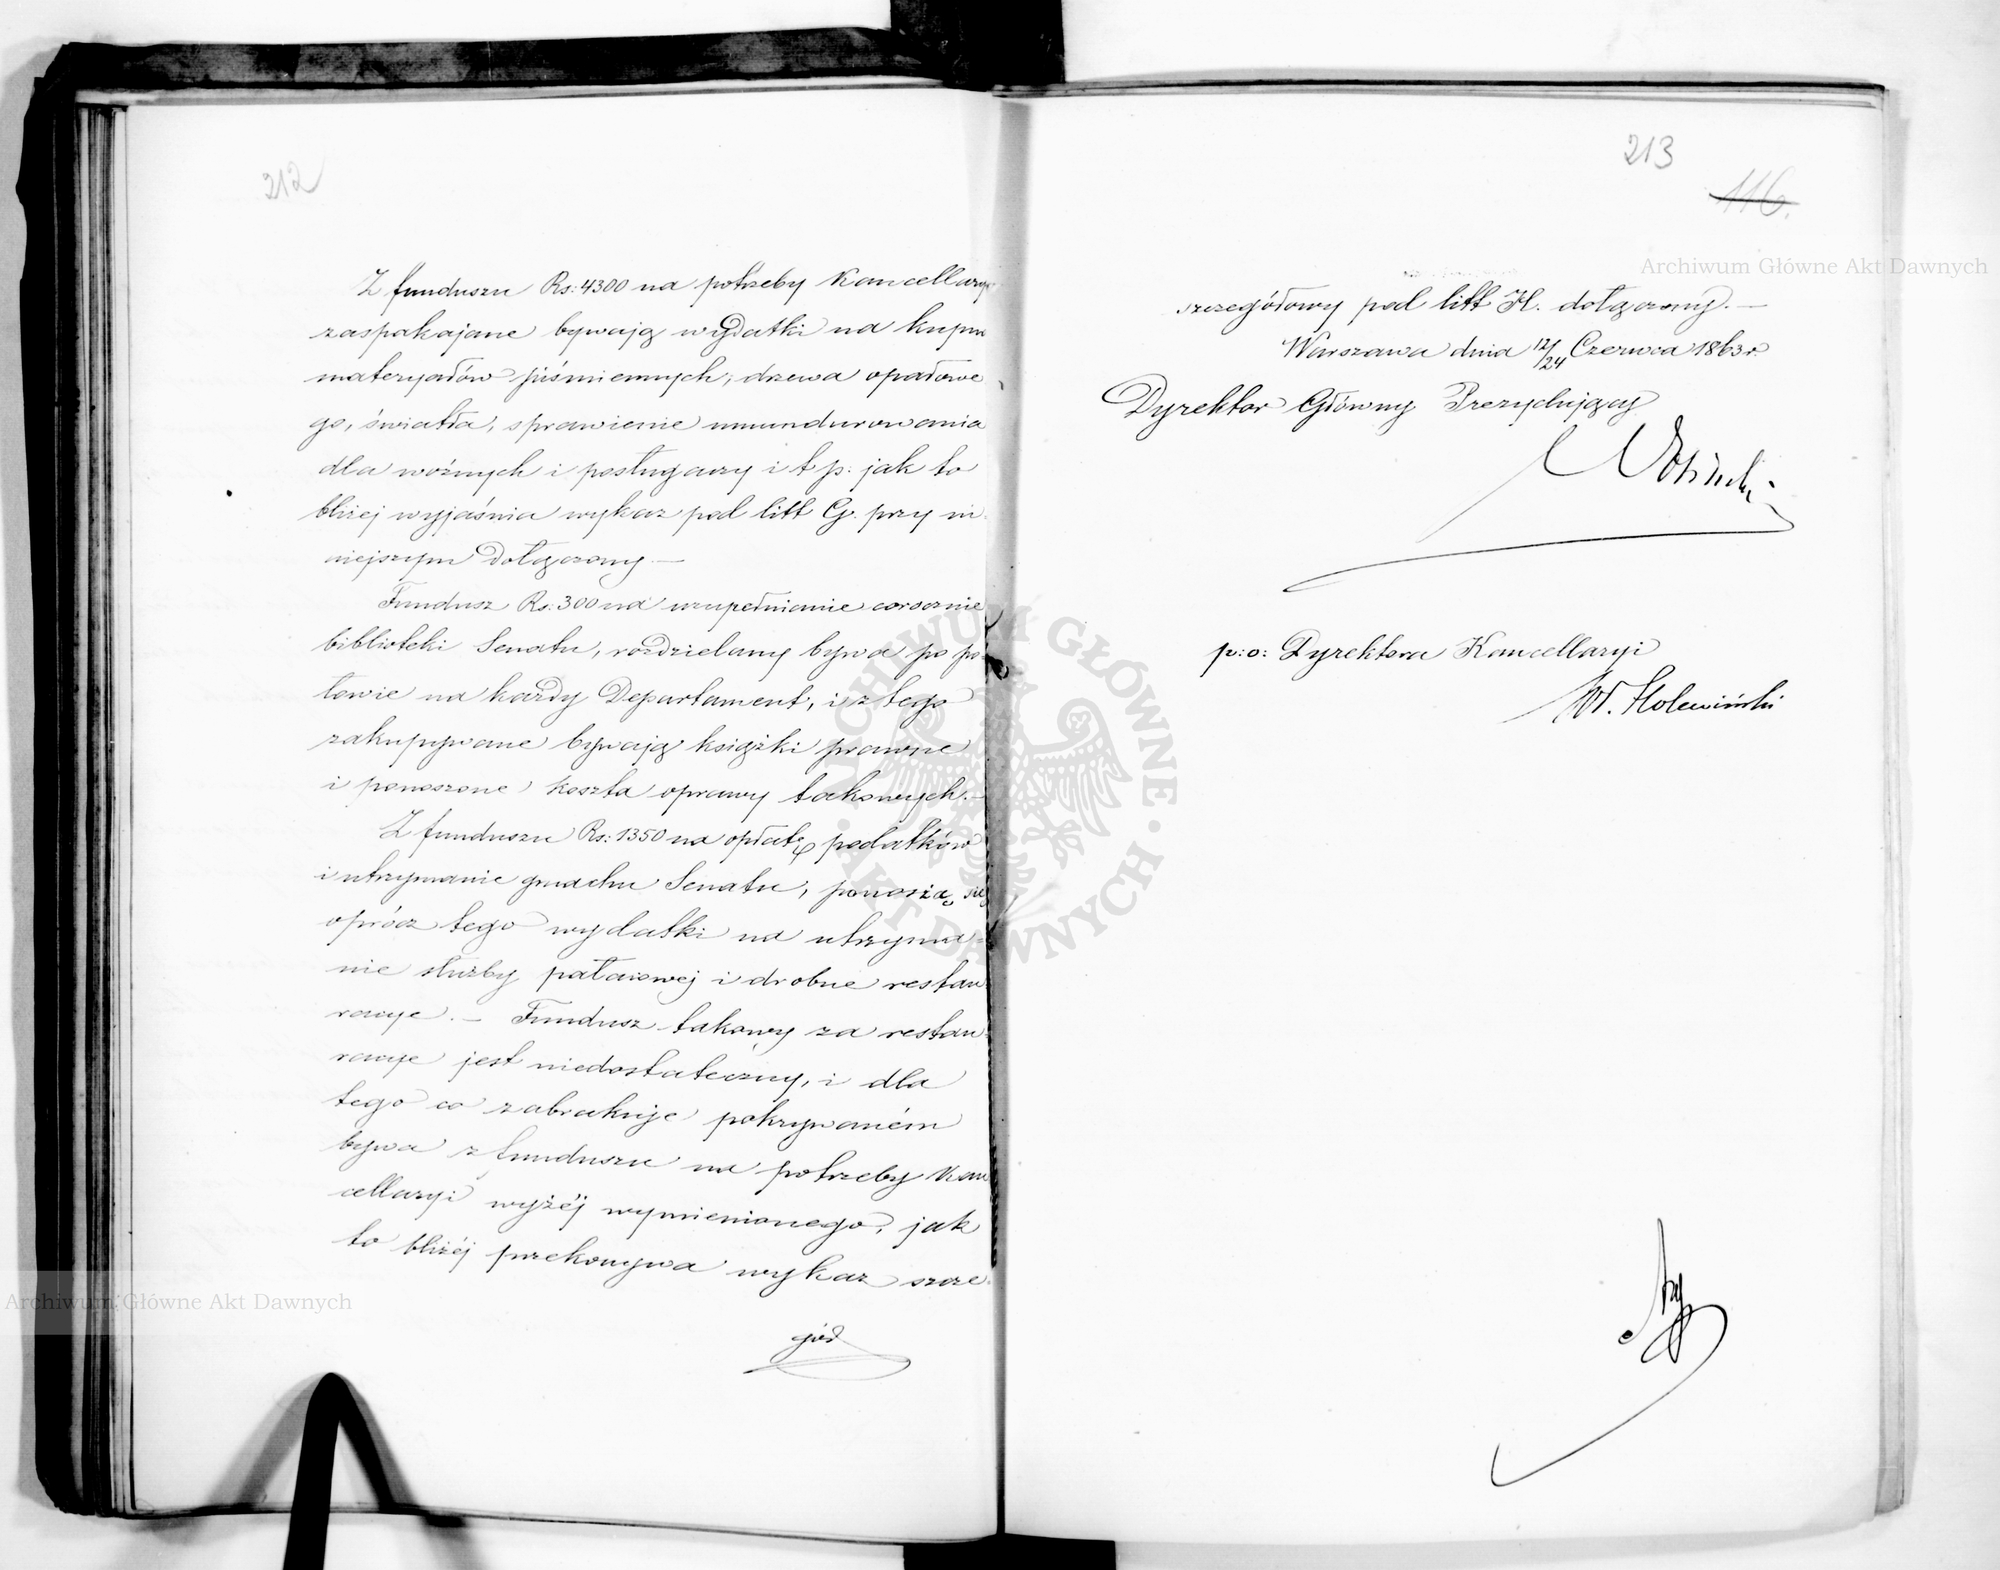 212
Z funduszu Rs: 4300 na potrzeby Kancellaryi
zaspakajane bywają wydatki na kupno
materyałów piśmiennych, drzewa opałowe
go, światła, sprawienie umundurowania
dla woźnych i posługaczy i t p. jak to
bliżej wyjaśnia wykaz pod litt G. przy ni
niejszym dołączony —
Fundusz Rs: 300 na uzupełnianie corocznie
biblioteki Senatu, rozdzielany bywa po po-
łowie na każdy Departament, i z tego
zakupywane bywają książki prawne
i ponoszone koszta oprawy takowych. —
Z funduszu Rs: 1350 na opłatę podatków
i utrzymanie gmachu Senatu, ponoszą się
oprócz tego wydatki na utrzyma-
nie służby pałacowej i drobne restau
racye. — Fundusz takowy za restau
racye jest niedostateczny, i dla
tego co zabraknie pokrywaném
bywa z funduszu na potrzeby Kan
cellaryi wyżéj wymienionego, jak
to bliżéj przekonywa wykaz szcze
gół
213
116.
szczegółowy pod litt H. dołączony. —
Warszawa dnia 12/24 Czerwca 1863 r.
Dyrektor Główny Prezydujący
p: o: Dyrektora Kancellaryi
W. Holewiński
Archiwum Główne Akt Dawnych
Archiwum Główne Akt Dawnych
ARCHIWUM GŁÓWNE · AKT DAWNYCH ·